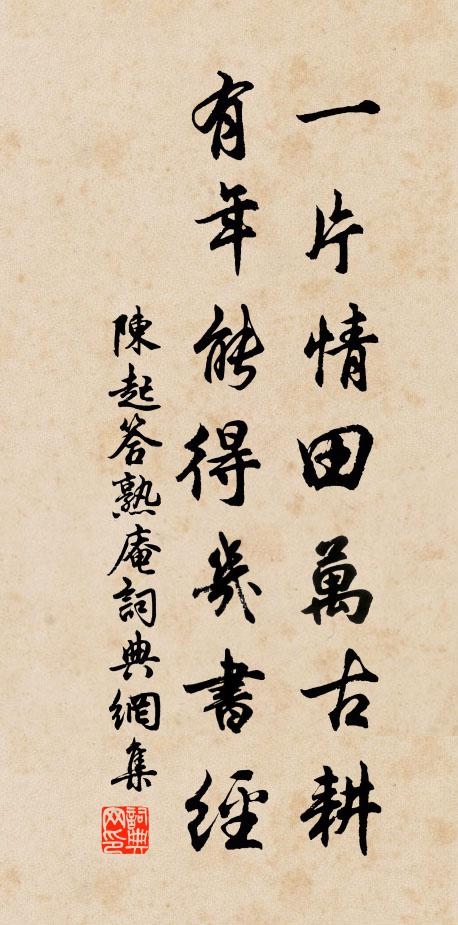 一片情田萬古耕
有年能得幾書經
陳起答熟庵詞典網集
詞典網印